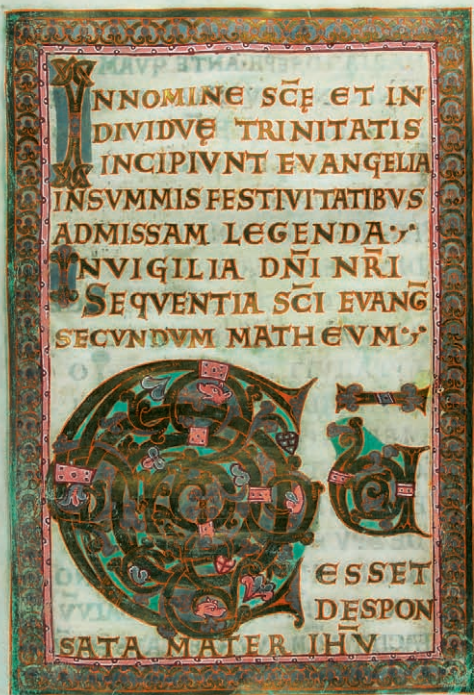 INNOMINE SC̄Ę ET IN
DIVIDVĘ TRINITATIS
INCIPIVNT EVANGELIA
INSVMMIS FESTIVITATIBVS
ADMISSAM LEGENDA
INVIGILIA DN̄I NR̄I
SEQVENTIA SC̄I EVANḠ
SECVNDVM MATHEVM
CŪ
ESSET
DESPON
SATA MATER IHV̄